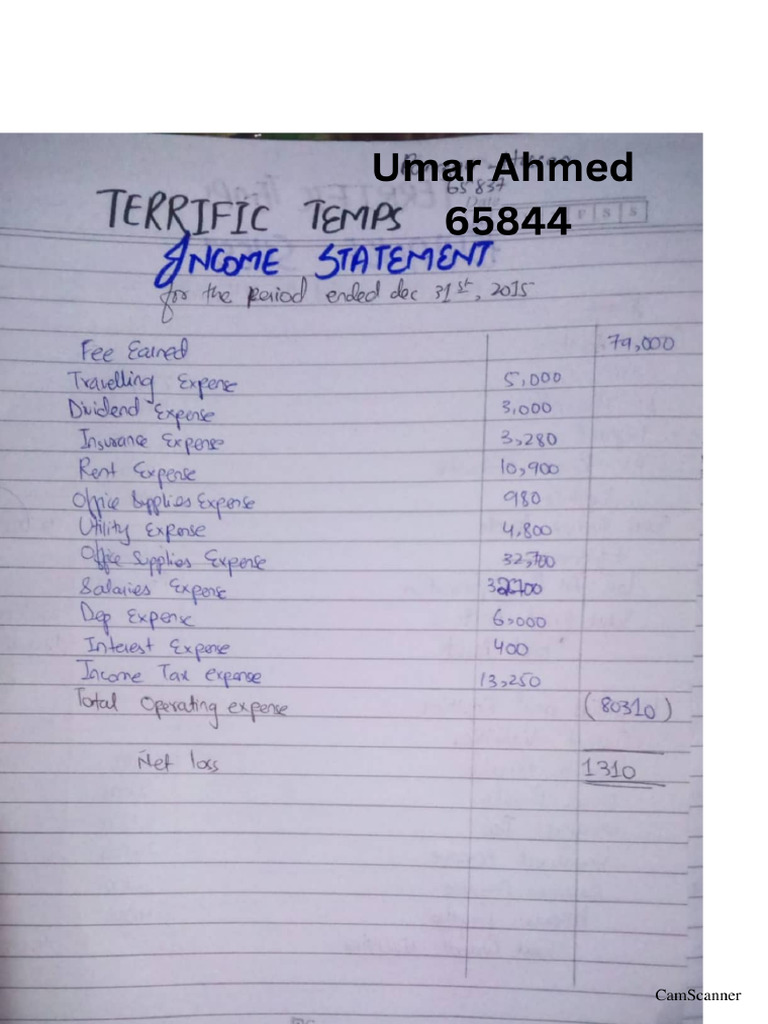 Umar Ahmed
65837
Date
65844
F S S
TERRIFIC TEMPS
INCOME STATEMENT
for the period ended dec 31st, 2015
Fee Earned 79,000
Travelling Expense 5,000
Dividend Expense 3,000
Insurance Expense 3,280
Rent Expense 10,900
Office Supplies Expense 980
Utility Expense 4,800
Office Supplies Expense 32,700
Salaries Expense
Dep Expense 6,000
Interest Expense 400
Income Tax expense 13,250
Total Operating expense (80310)
Net loss 1310
CamScanner